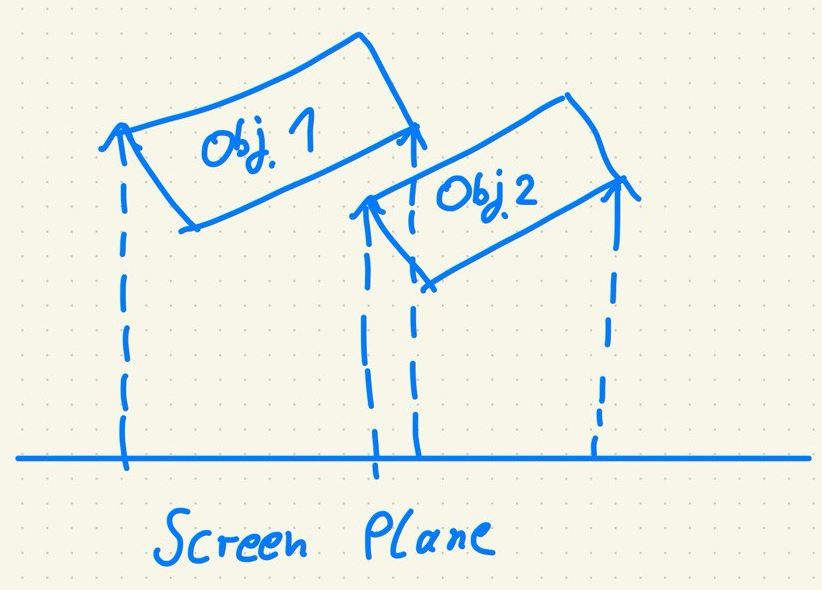 Obj. 1
Obj. 2
Screen Plane